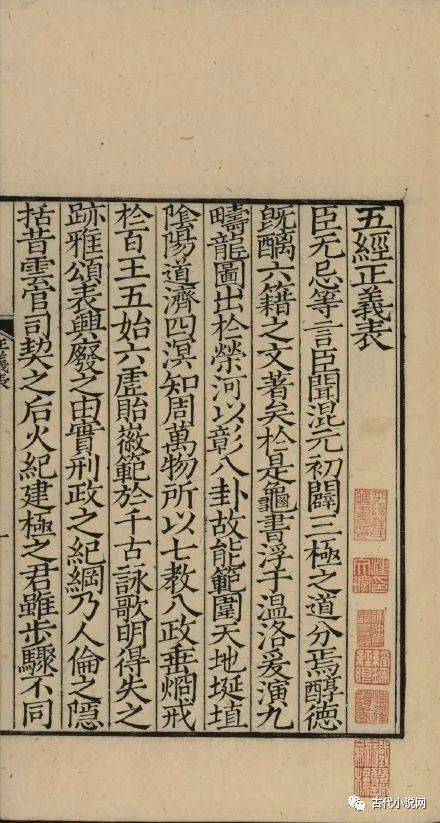 五經正義表
臣无忌等言臣聞混元初闢三極之道分焉醇德
旣醨六籍之文著矣於是龜書浮于温洛爰演九
疇龍圖出於榮河以彰八卦故能範圍天地埏埴
隂陽道濟四溟知周萬物所以七教八政垂烱戒
於百王五始六虛貽徽範於千古詠歌明得失之
跡雅頌表興廢之由實刑政之紀綱乃人倫之隱
括昔雲官司契之后火紀建極之君雖步驟不同
正義表
一
古代小说网